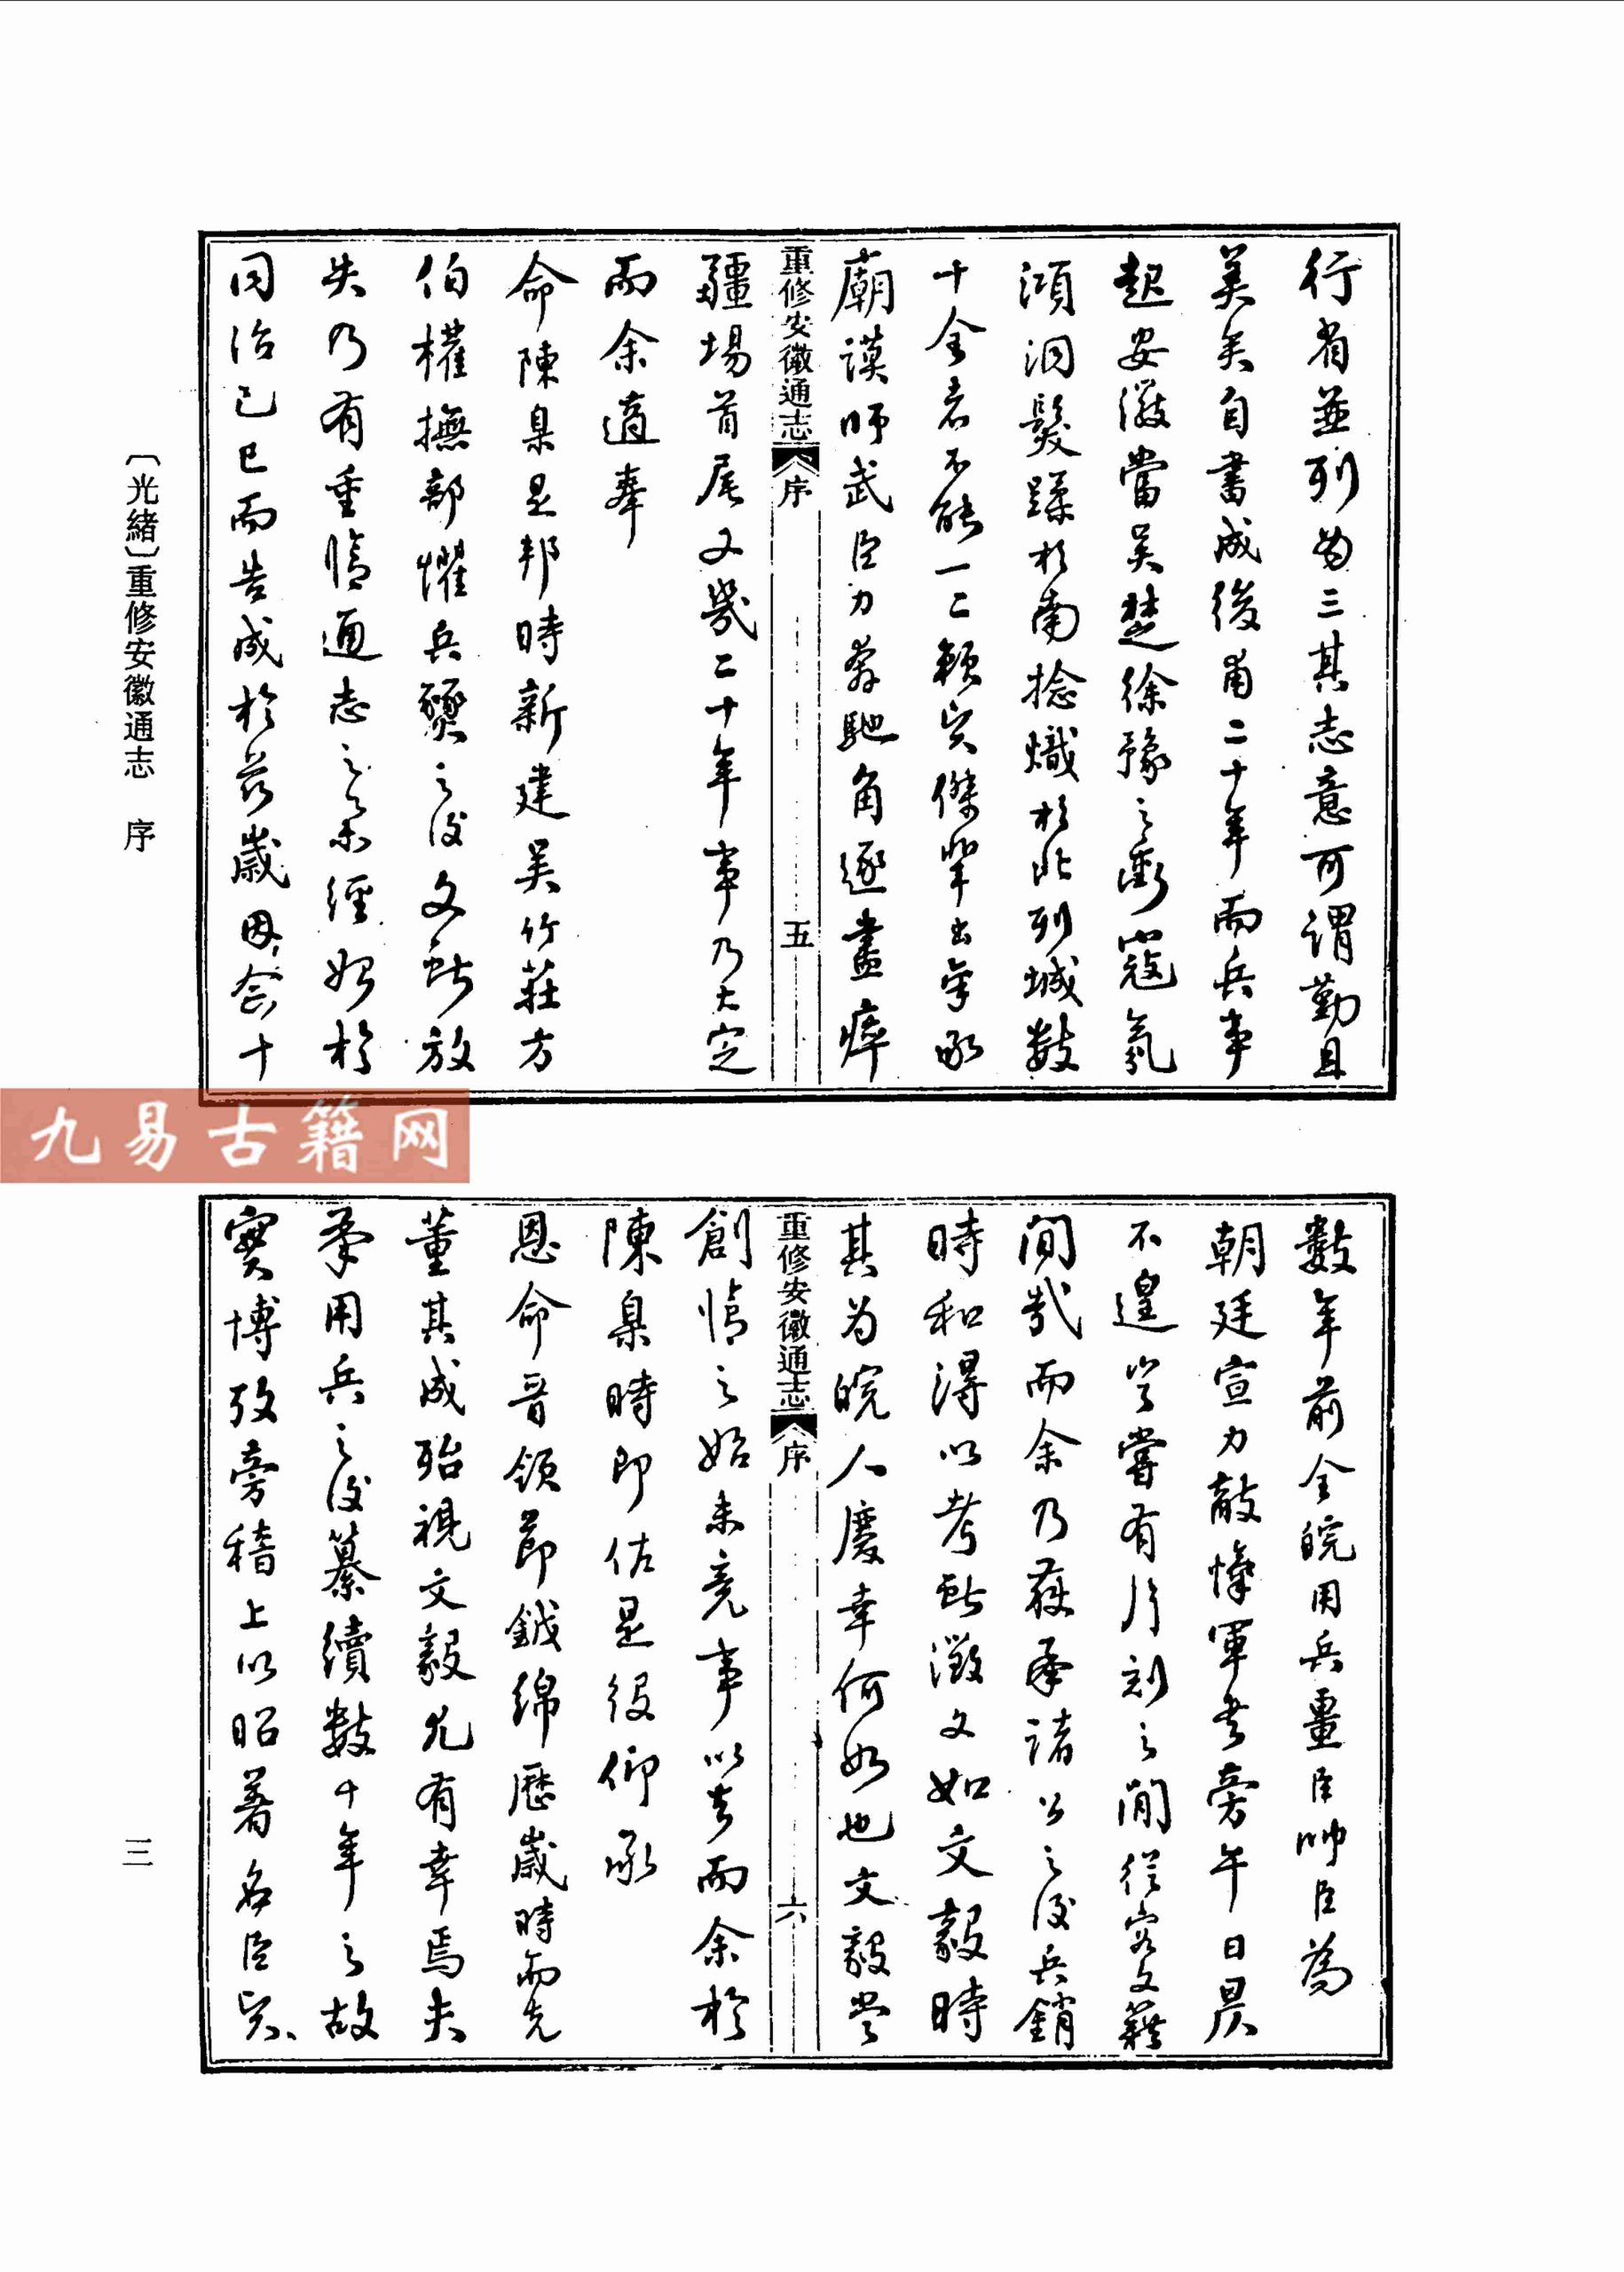 行省並列為三其志意可謂勤且
美矣自書成後甫二十年而兵事
起安徽當吳楚徐豫之衝寇氛
澒洞髮蹂於南捻熾於北列城數
十全者不能一二賴賢傑輩出稟承
廟謨師武臣力奔馳角逐盡瘁
重修安徽通志 序 五
疆場首尾又幾二十年事乃大定
而余適奉
命陳臬是邦時新建吳竹莊方
伯權撫部懼兵燹之後文獻放
失乃有重脩通志之奏經始於
同治己巳而告成於茲歲因念十
數年前全皖用兵疆臣帥臣為
朝廷宣力敵愾軍書旁午日昃
不遑豈嘗有片刻之閒從容文籍
間哉而余乃获承諸公之後兵銷
時和得以考獻徵文如文毅時
其為皖人慶幸何如也文毅當
重修安徽通志 序 六
創脩之始未竟事以去而余於
陳臬時即佐是役仰承
恩命晉領節鉞綿歷歲時而克
董其成殆視文毅尤有幸焉夫
承用兵之後纂續數十年之故
實博攷旁稽上以昭著名臣賢
〔光緒〕重修安徽通志 序
三
九易古籍网